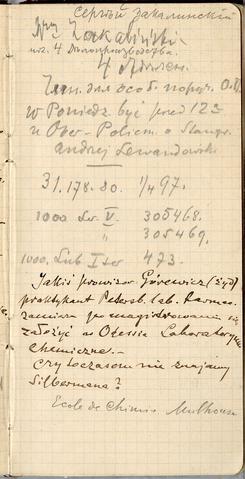 Сергей Закалинский
Zakaliński
4 Делопроизводства
4
Чин. для особ. поруч.
w Poniedz. być przed 12
u Ober-Policm. o
Andrzej Lewandowski
31.178.80. 1/4 97.
1000 Lw V. 305468.
" " 305469.
1000 Lub I 473.
Jakiś prowizor Górewicz (żyd)
praktykant Petersb. lab. Farmac.
zamierza po magistrowaniu się
założyć w Odessie Laboratoryum
chemiczne.
Czy toczasem nie znajomy
Silbermana?
Ecole de Chimie Mulhouse